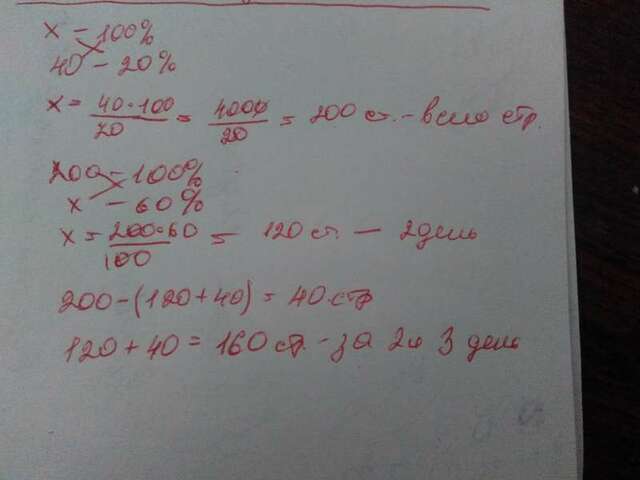 x – 100%
40 – 20%
x = 40·100/20 = 4000/20 = 200 ст. – всего стр.
200 – 100%
x – 60%
x = 200·60/100 = 120 ст. — 2 день
200 – (120 + 40) = 40 стр
120 + 40 = 160 стр. – за 2 и 3 день